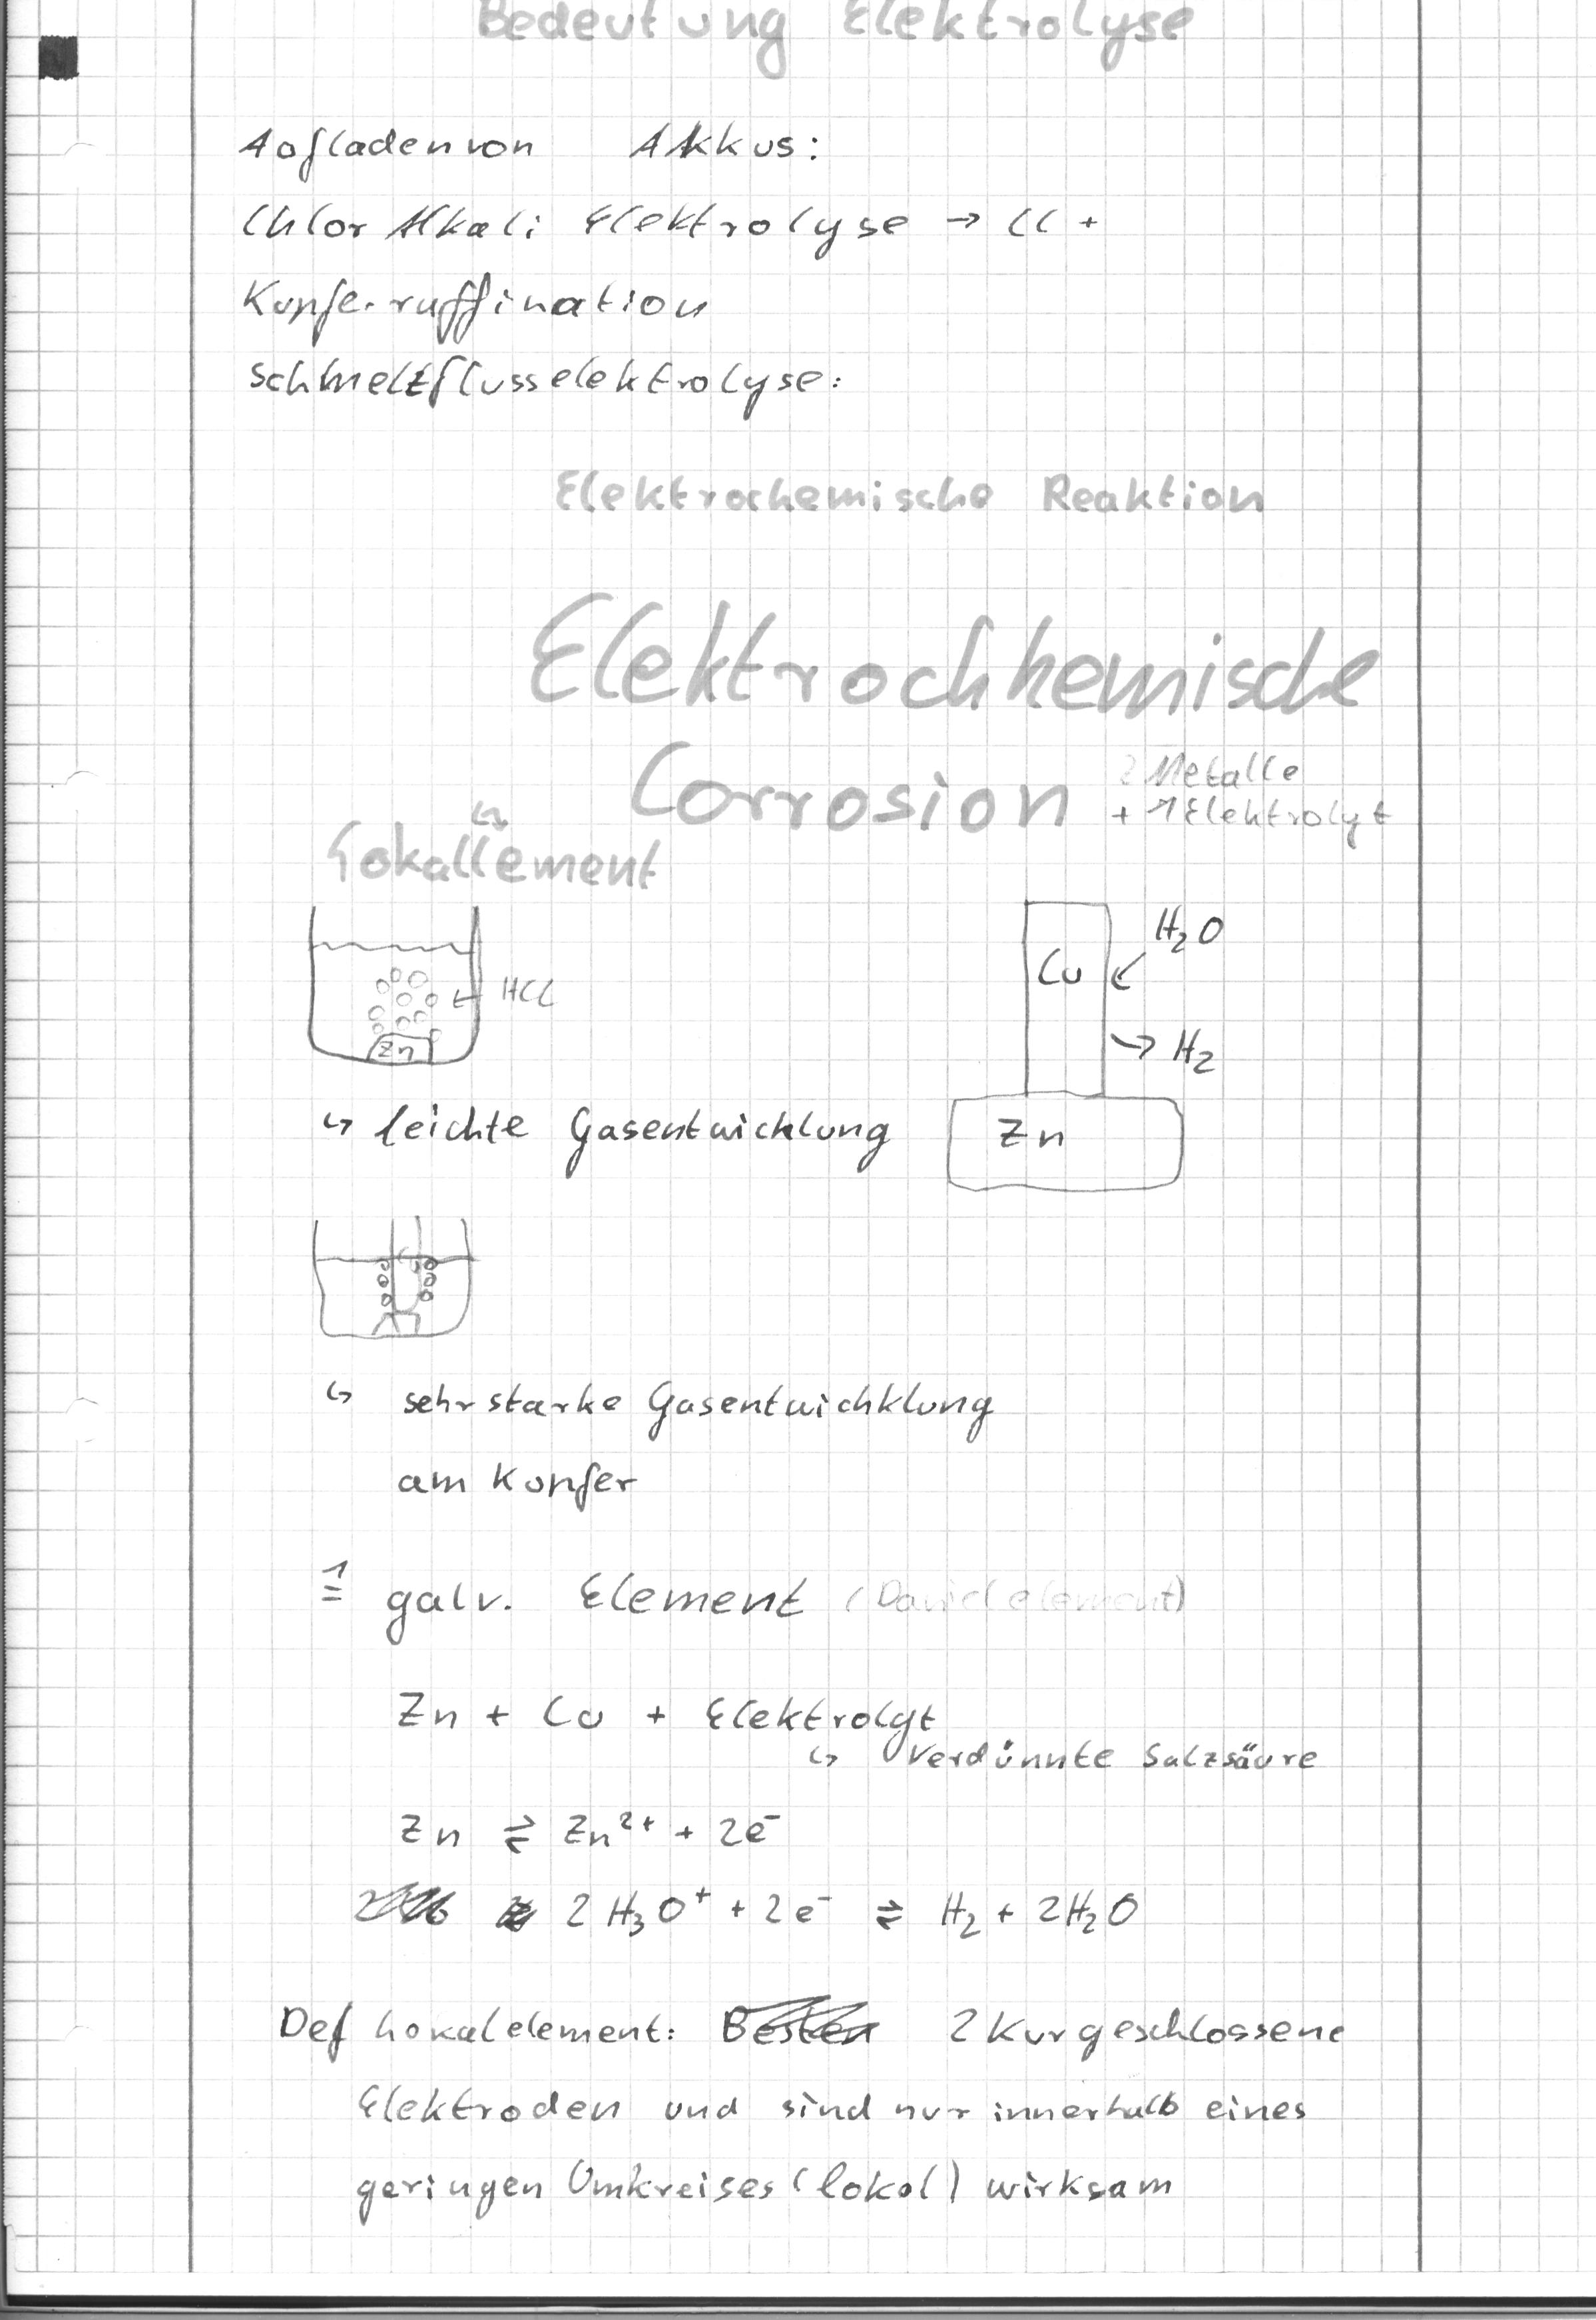 Bedeutung Elektrolyse
Aufladen von Akkus:
Chlor Alkali Elektrolyse → Cl +
Kupferruffination
Schmelzflusselektrolyse:
Elektrochemische Reaktion
Elektrochhemische
Corrosion
2 Metalle
+ 1 Elektrolyt
↳
Lokallement
HCl
Zn
Cu
H₂O
→ H₂
Zn
↳ leichte Gasentwicklung
↳ sehr starke Gasentwichklung
am Kupfer
≙ galv. Element (Danielelement)
Zn + Cu + Elektrolyt
↳ Verdünnte Salzsäure
Zn ⇌ Zn²⁺ + 2e⁻
2 H₃O⁺ + 2e⁻ ⇌ H₂ + 2H₂O
Def Lokalelement: 2 Kurgeschlossene
Elektroden und sind nur innerhalb eines
geringen Umkreises (lokal) wirksam